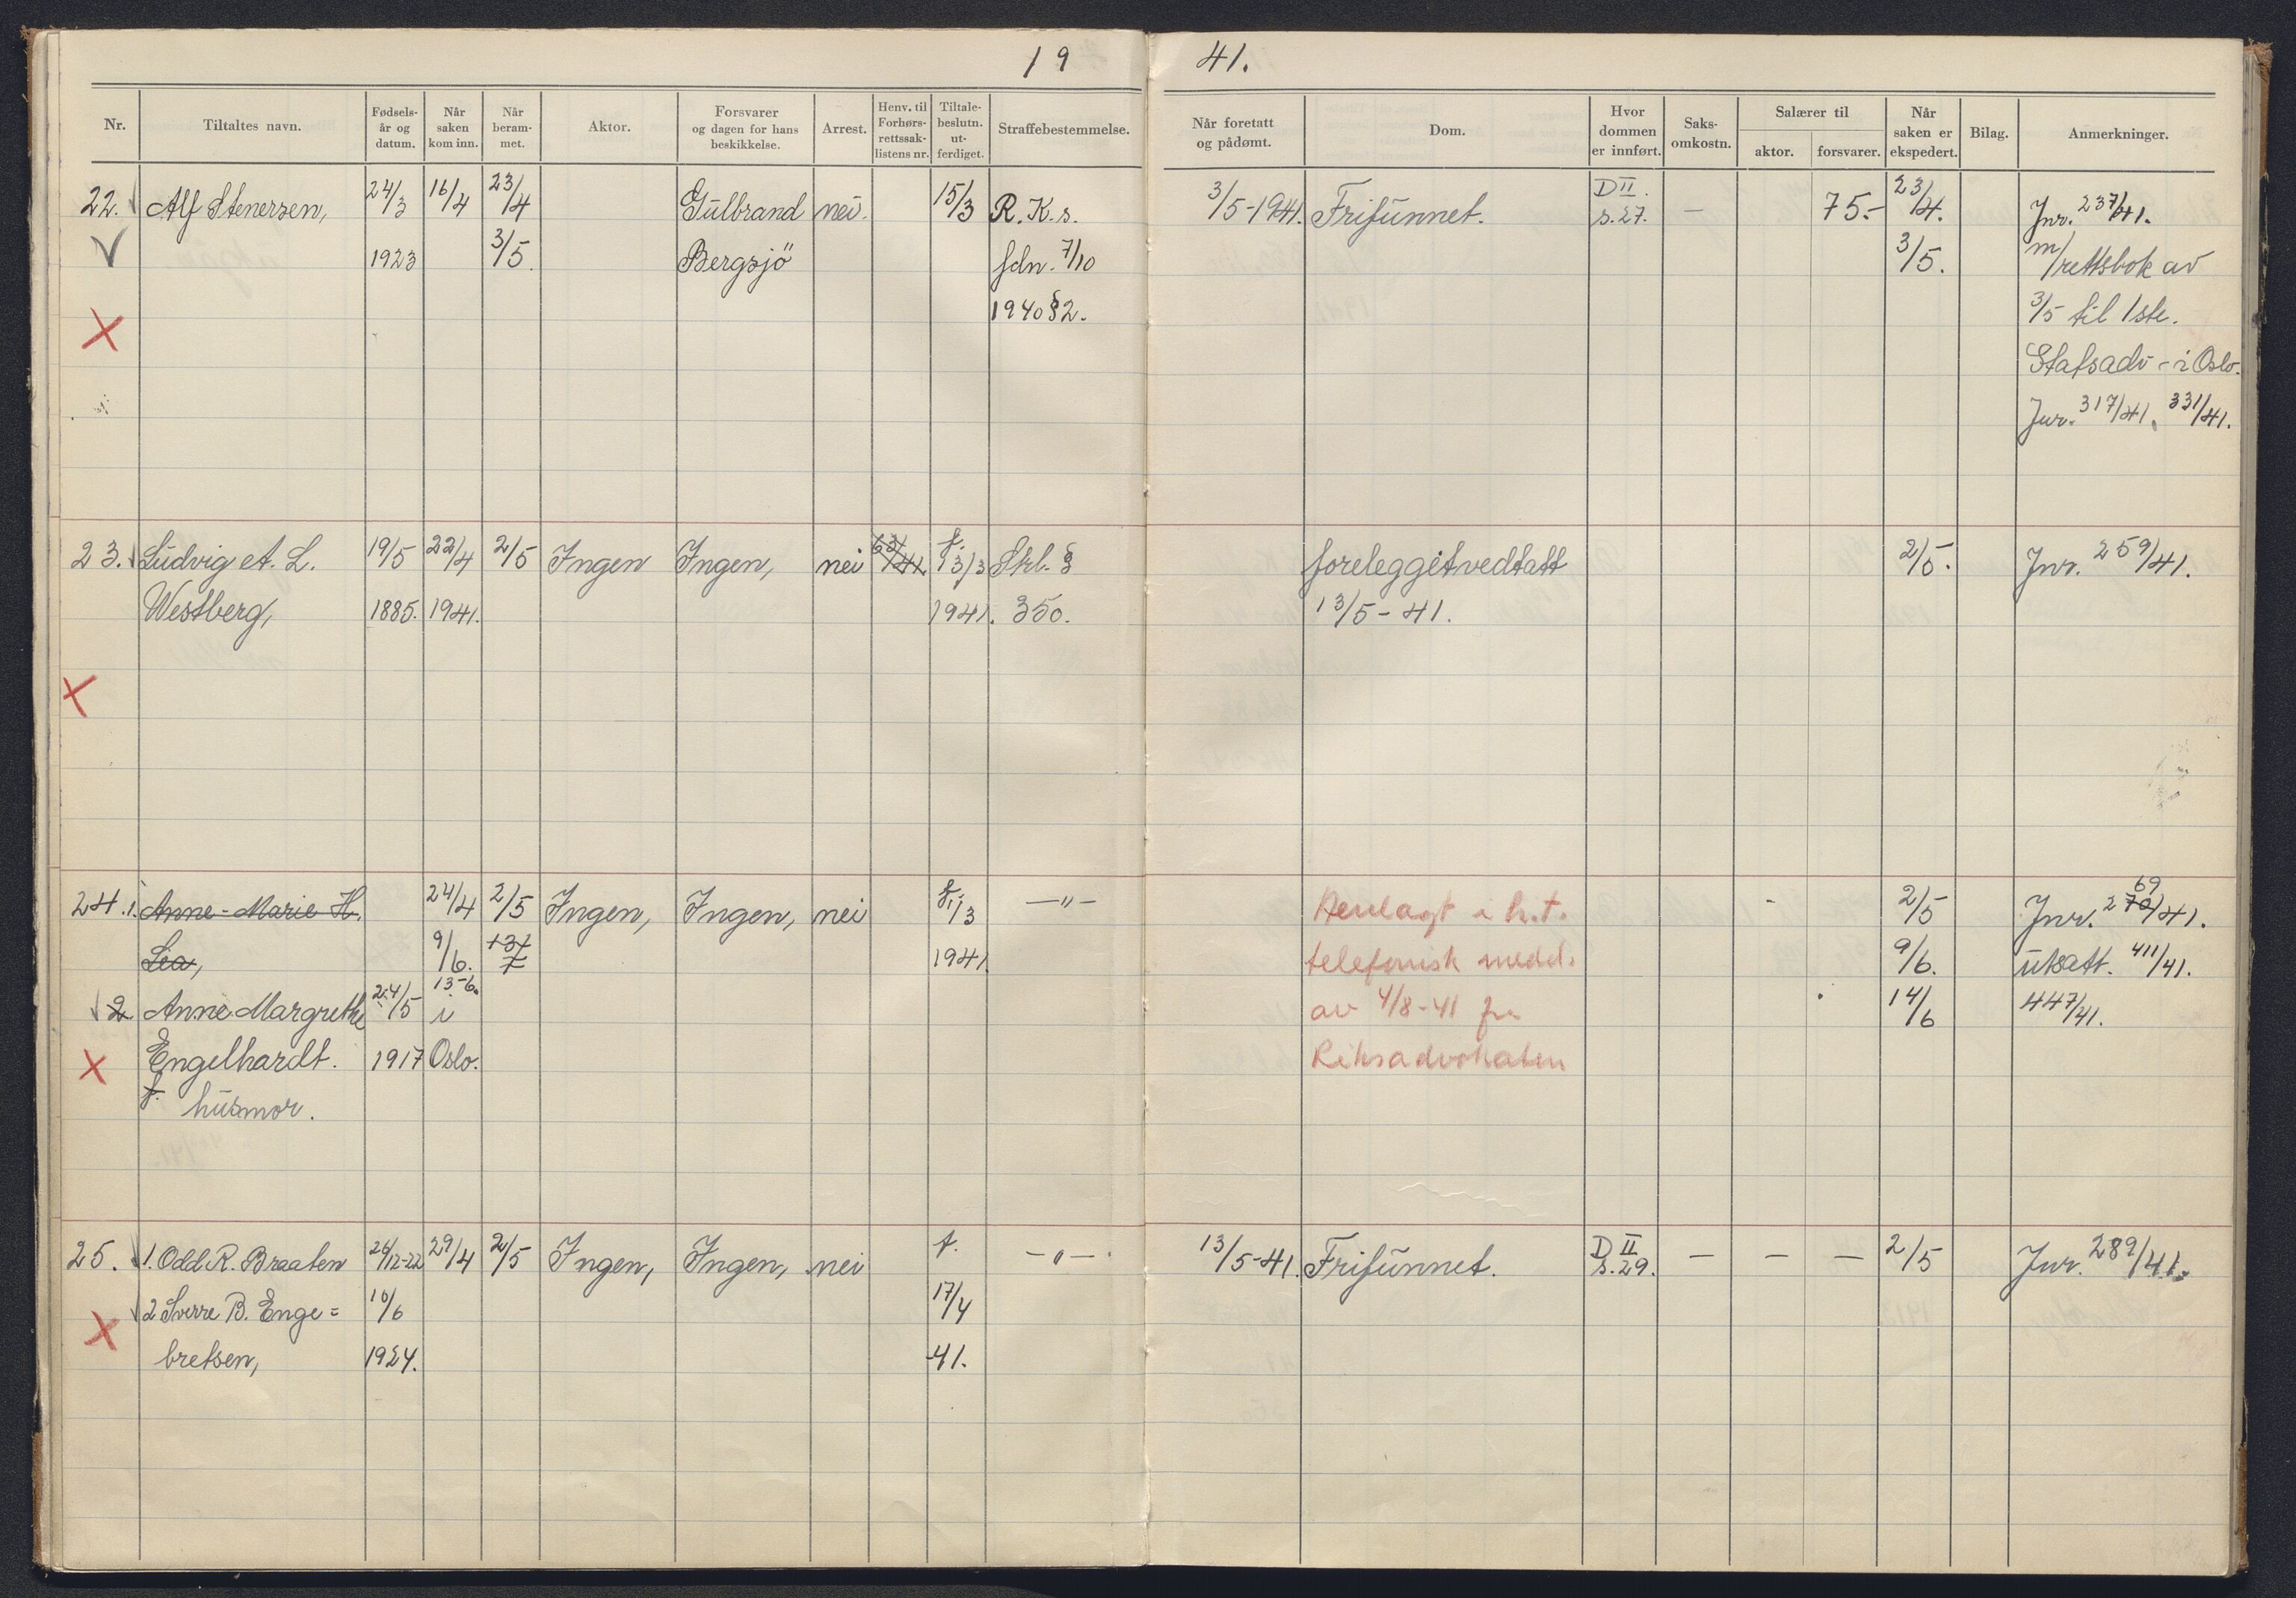 19 41.
Nr. Tiltaltes navn. Fødsels-år og datum. Når saken kom inn. Når beram-met. Aktor. Forsvarer og dagen for hans beskikkelse. Arrest. Henv. til Forhørs-rettssak-listens nr. Tiltale-beslutn. ut-ferdiget. Straffebestemmelse. Når foretatt og pådømt. Dom. Hvor dommen er innført. Saks-omkostn. Salærer til aktor. forsvarer. Når saken er ekspedert. Bilag. Anmerkninger.
22. Alf Stenersen, 24/3 16/4 23/4 Gulbrand nei. 15/3 R. K. s. 3/5-1941. Frifunnet. D II. s. 27. — 75.- 23/4. Jnr. 237/41.
V 1923 3/5. Bergsjö fdn. 7/10 3/5. m/rettsbok av
X 1940 § 2. 3/5 til 1ste.
Statsadv - i Oslo.
Jnr. 317/41, 331/41.
23. Ludvig A. L. 19/5 22/4 2/5 Ingen Ingen, nei 63/41. f. 13/3 Strl. § forelegget vedtatt 2/5. Jnr. 259/41.
Westberg, 1885. 1941. 1941. 350. 13/5 - 41.
X
24. 1. Anne-Marie H. 24/4 2/5 Ingen, Ingen, nei f. 11/3 —"— Henlagt i h.t. - 2/5 Jnr. 270/41. 69
Lea, 9/6. 13/7 1941. telefonisk medd. 9/6. utsatt. 411/41.
2 Anne Margrethe 24/5 13-6. i av 4/8-41 fra 14/6 447/41.
X Engelhardt. 1917 Oslo. Riksadvokaten
f. husmor.
25. 1. Odd R. Braaten 26/12-22 29/4 2/5 Ingen, Ingen, nei f. —"—. 13/5-41. Frifunnet. D II s. 29. — — — 2/5 Jnr. 289/41.
2 Sverre B. Enge= 10/6 17/4
X bretsen, 1924. -41.